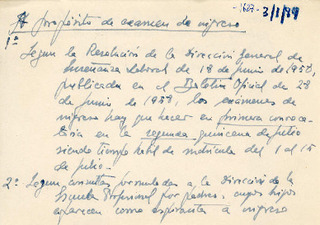 A propósito de examen de ingreso
1627 - 3/1/89
1ª
Segun la Resolución de la Dirección General de
Enseñanza Laboral de 18 de Junio de 1959,
publicada en el Boletín Oficial de 28
de Junio de 1959, los exámenes de
ingreso hay que hacer en primera convoca-
toria en la segunda quincena de Julio
siendo tiempo habil de matrícula del 1 al 15
de Julio.-
2ª Segun consultas formuladas a la Dirección de la
Escuela Profesional por padres cuyos hijos
aparecen como aspirantes a ingreso